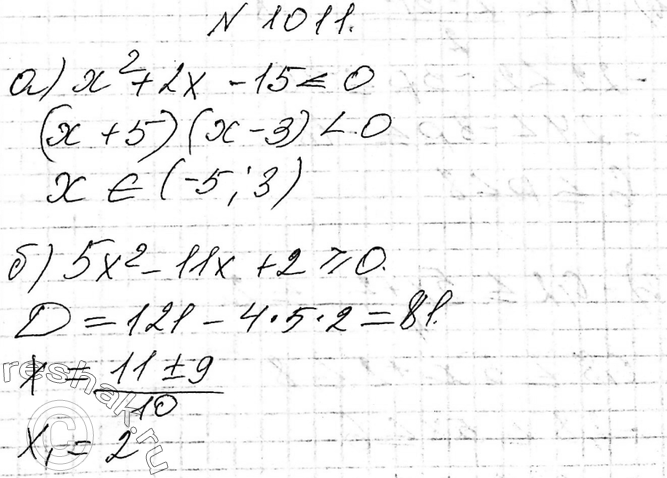 N 1011.
а) x² + 2x - 15 < 0
(x + 5)(x - 3) < 0
x ∈ (-5; 3)
б) 5x² - 11x + 2 ≥ 0.
D = 121 - 4·5·2 = 81.
x = (11 ± 9)/10
x₁ = 2
reshak.ru